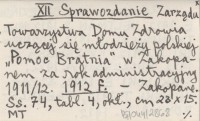 XII Sprawozdanie Zarządu
Towarzystwa Domu Zdrowia
uczącej się młodzieży polskiej
"Pomoc Bratnia" w Zakopa-
nem za rok administracyjny
1911/12. 1912 F. – Zakopane.
Ss. 74, tabl. 4, okł., cm 23 x 15.
MT